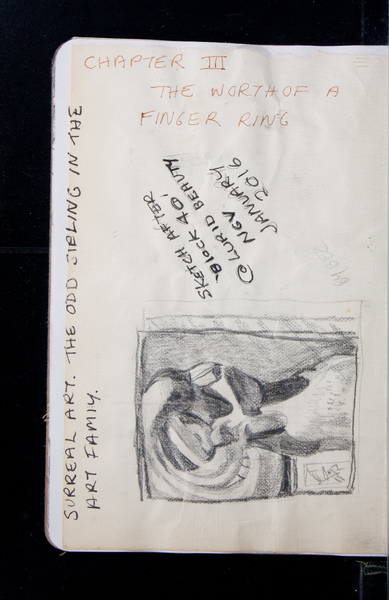 CHAPTER III
THE WORTH OF A
FINGER RING
SURREAL ART. THE ODD SIBLING IN THE
ART FAMILY.
SKETCH AFTER
'BLOCK 40'
@ LURID BEAUTY
NGV
JANUARY
2016